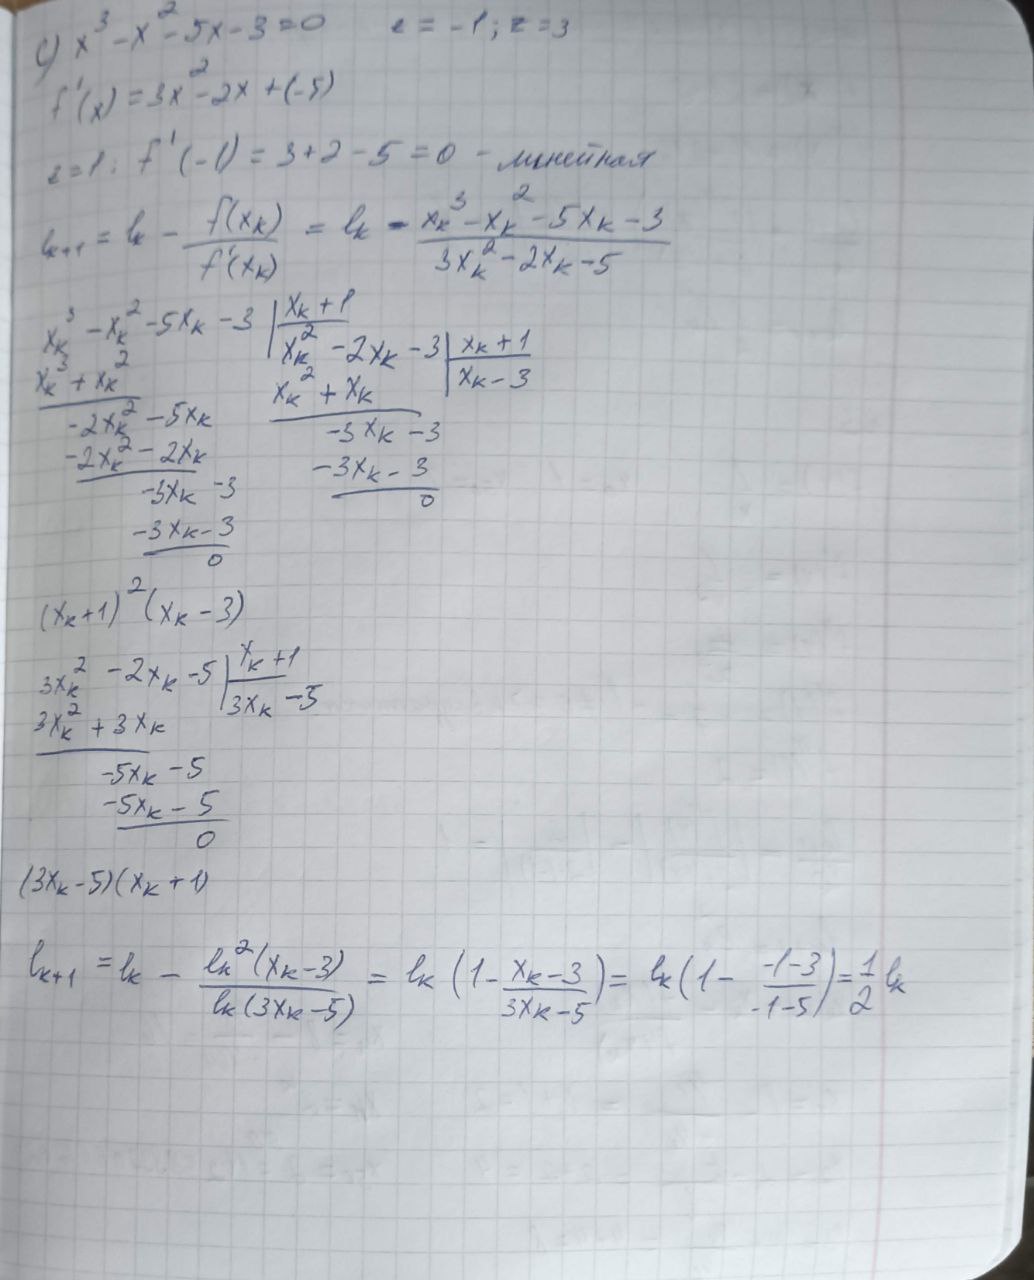 c) x³ - x² - 5x - 3 = 0   z = -1; z = 3
f'(x) = 3x² - 2x + (-5)
z = 1: f'(-1) = 3 + 2 - 5 = 0 - линейная
lₖ₊₁ = lₖ - f(xₖ)/f'(xₖ) = lₖ - (xₖ³ - xₖ² - 5xₖ - 3)/(3xₖ² - 2xₖ - 5)
xₖ³ - xₖ² - 5xₖ - 3 | xₖ + 1
xₖ² - 2xₖ - 3 | xₖ + 1
xₖ³ + xₖ²   xₖ² + xₖ   xₖ - 3
-2xₖ² - 5xₖ   -3xₖ - 3
-2xₖ² - 2xₖ   -3xₖ - 3
-3xₖ - 3   0
-3xₖ - 3
0
(xₖ + 1)² (xₖ - 3)
3xₖ² - 2xₖ - 5 | xₖ + 1
3xₖ² + 3xₖ   3xₖ - 5
-5xₖ - 5
-5xₖ - 5
0
(3xₖ - 5)(xₖ + 1)
lₖ₊₁ = lₖ - lₖ²(xₖ - 3)/lₖ(3xₖ - 5) = lₖ (1 - (xₖ - 3)/(3xₖ - 5)) = lₖ (1 - (-1-3)/(-1-5)) = 1/2 lₖ